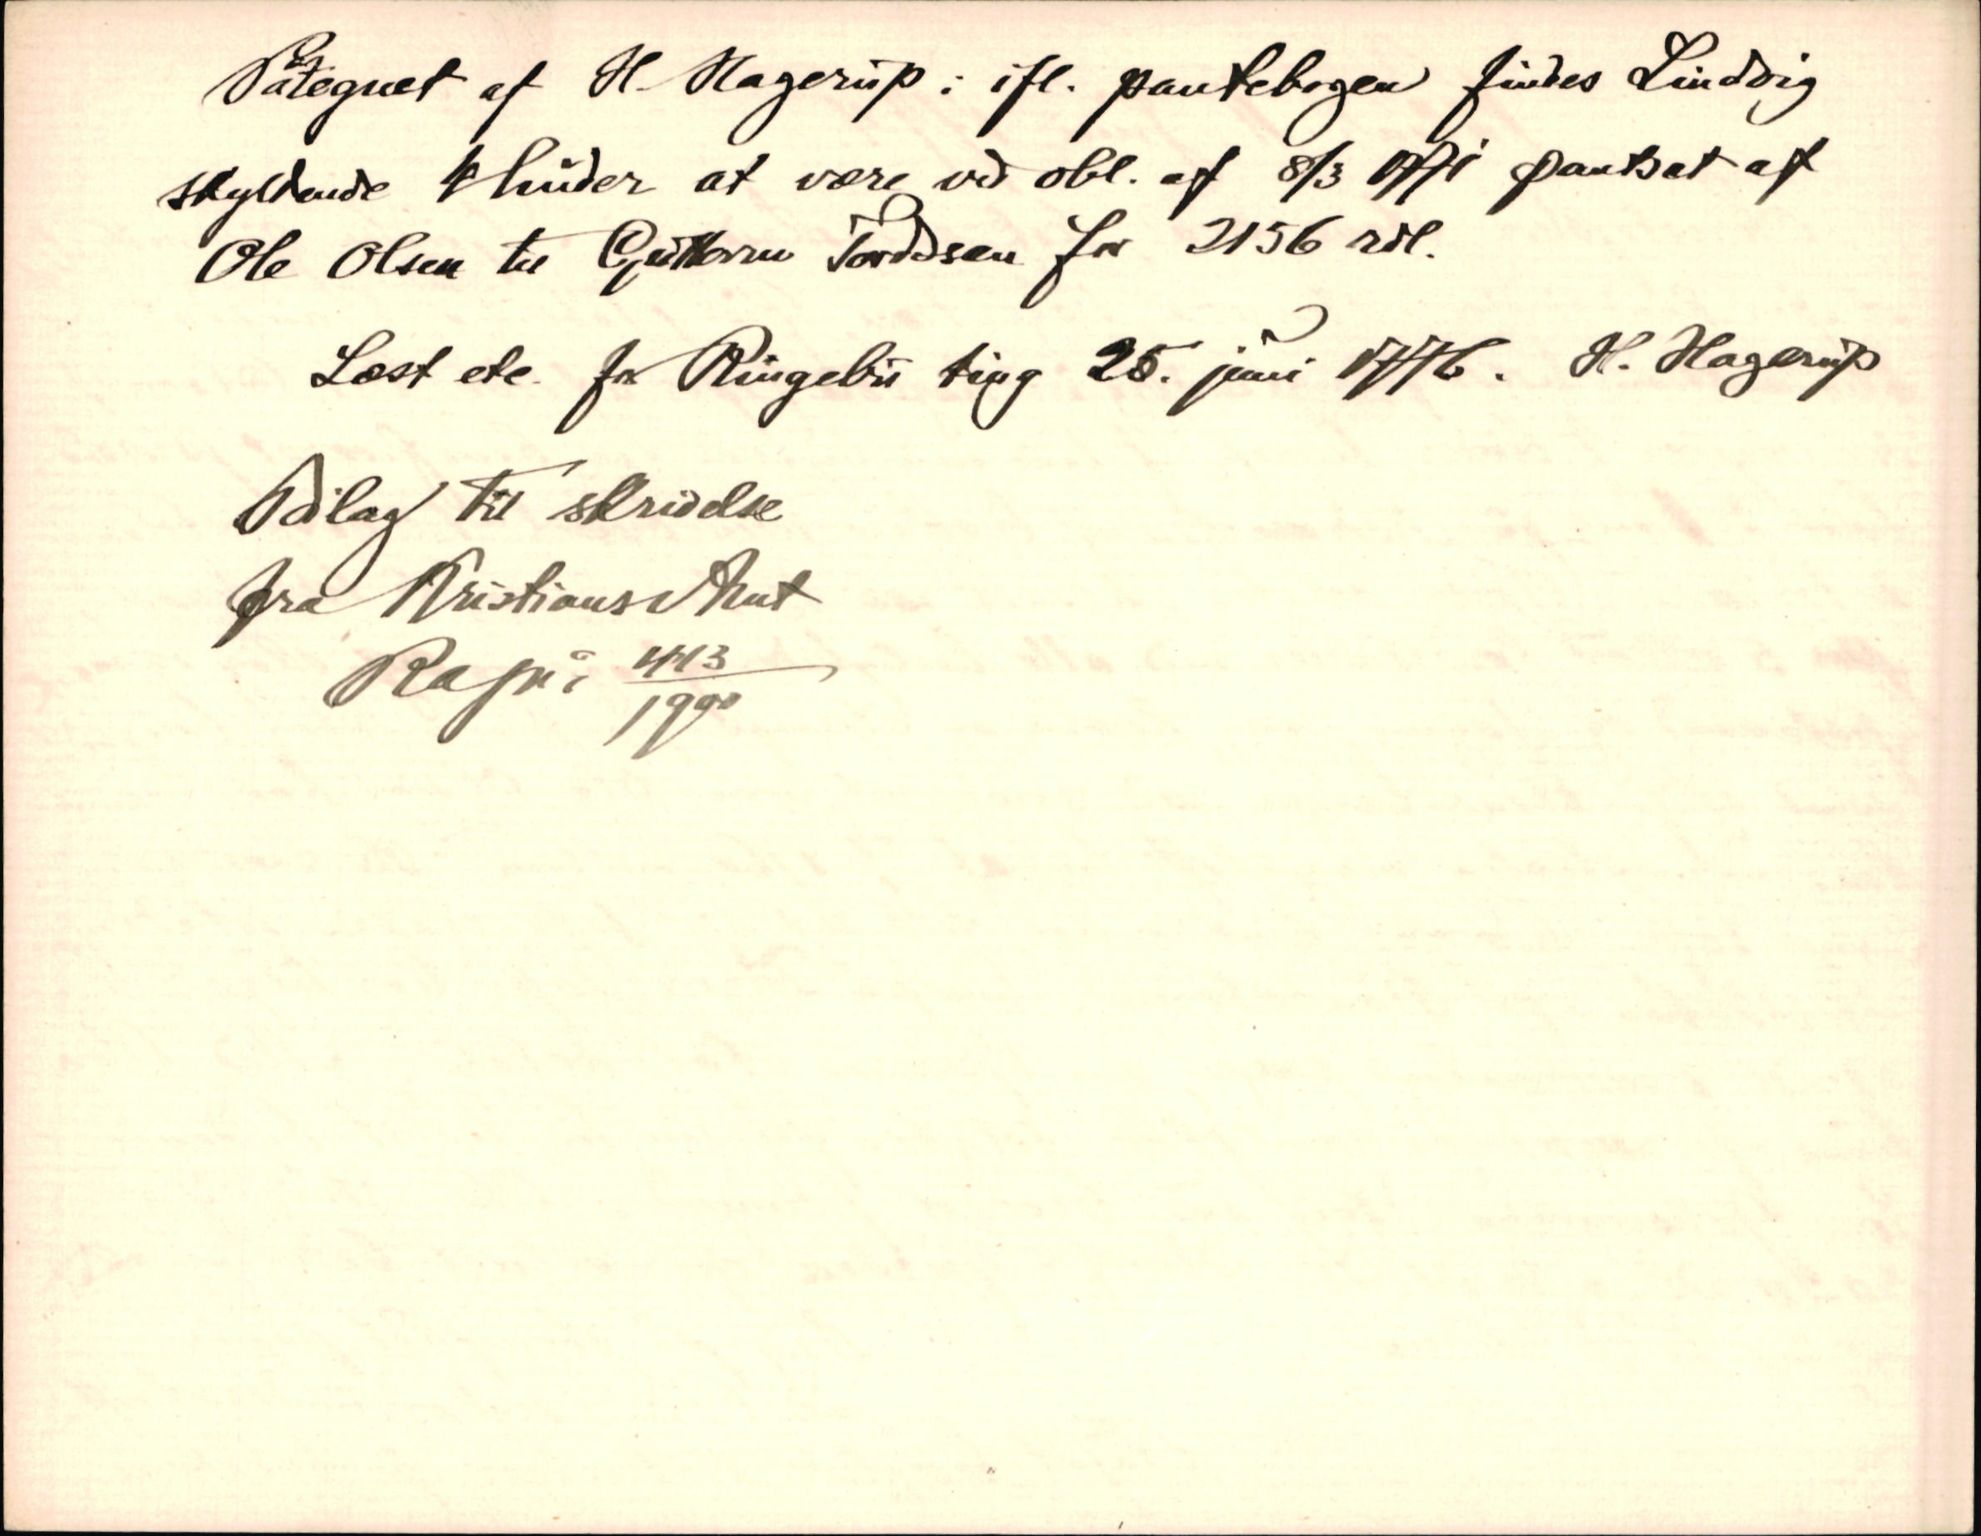 Påtegnet af H. Hagerup: ifl. pantebogen findes Lindvig
skyldende 4 huder at være ved obl. af 8/3 1771 pantsat af
Ole Olsen til Guttorm Tordsen for 2156 rdl.
Læst etc. for Ringebu ting 25. juni 1776. H. Hagerup
Bilag til skrivelse
fra Kristians Amt
Ra jn: 443
1990